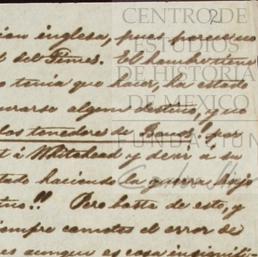 2
CENTRO DE
ESTUDIOS
DE HISTORIA
DE MEXICO
FUNDACIÓN
cion inglesa, pues parece no
t del Times. El hombre tiene
o tenia que hacer, ha estado
urarse algun destino, y no
los tenedores de Bonos! por
t á Whitehead y decir a su
tado haciendo la guerra bajo
tivo!! Pero basta de esto, y
iempre cometes el error de
es aunque es cosa insignifi-